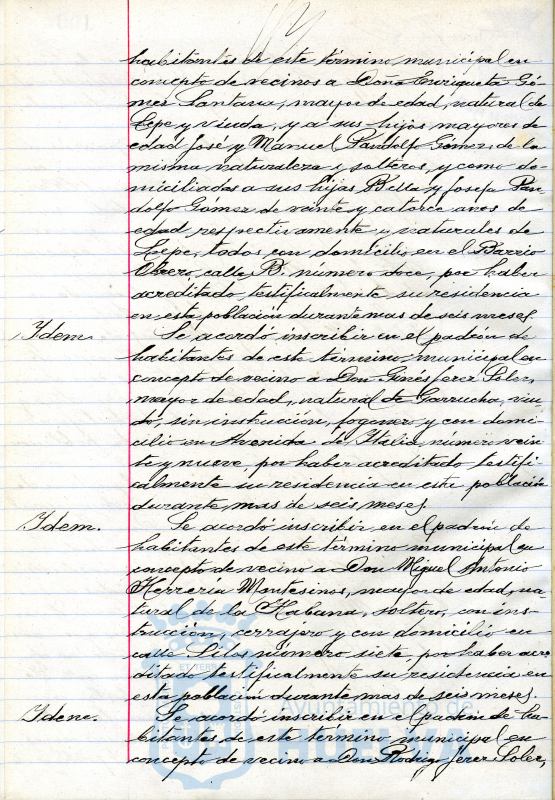 habitantes de este término municipal en
concepto de vecinos a Doña Enriqueta Gó-
mez Santana, mayor de edad, natural de
Lepe y viuda, y a sus hijos mayores de
edad José y Manuel Pandolfo Gómez, de la
misma naturaleza y solteros, y como do-
miciliados a sus hijas Bella y Josefa Pan
dolfo Gómez de veinte y catorce años de
edad respectivamente y naturales de
Lepe, todos con domicilio en el Barrio
Obrero, calle B. número doce, por haber
acreditado testificalmente su residencia
en esta población durante mas de seis meses.
Idem. Se acordó inscribir en el padrón de
habitantes de este término municipal en
concepto de vecino a Don Ginés Jerez Soler,
mayor de edad, natural de Garrucha, viu
do, sin instrucción, fogonero y con domi-
cilio en Avenida de Italia, número vein
te y nueve, por haber acreditado testifi
calmente su residencia en esta población
durante mas de seis meses.
Idem. Se acordó inscribir en el padrón de
habitantes de este término municipal en
concepto de vecino a Don Miguel Antonio
Herrería Montesinos, mayor de edad, na-
tural de la Habana, soltero, con ins-
trucción, cerrajero y con domicilio en
calle Silos número siete, por haber acre
ditado testificalmente su residencia en
esta población durante mas de seis meses.
Idem. Se acordó inscribir en el padrón de ha-
bitantes de este término municipal en
concepto de vecino a Don Rodrigo Jerez Soler,
Ayuntamiento de
HUELVA